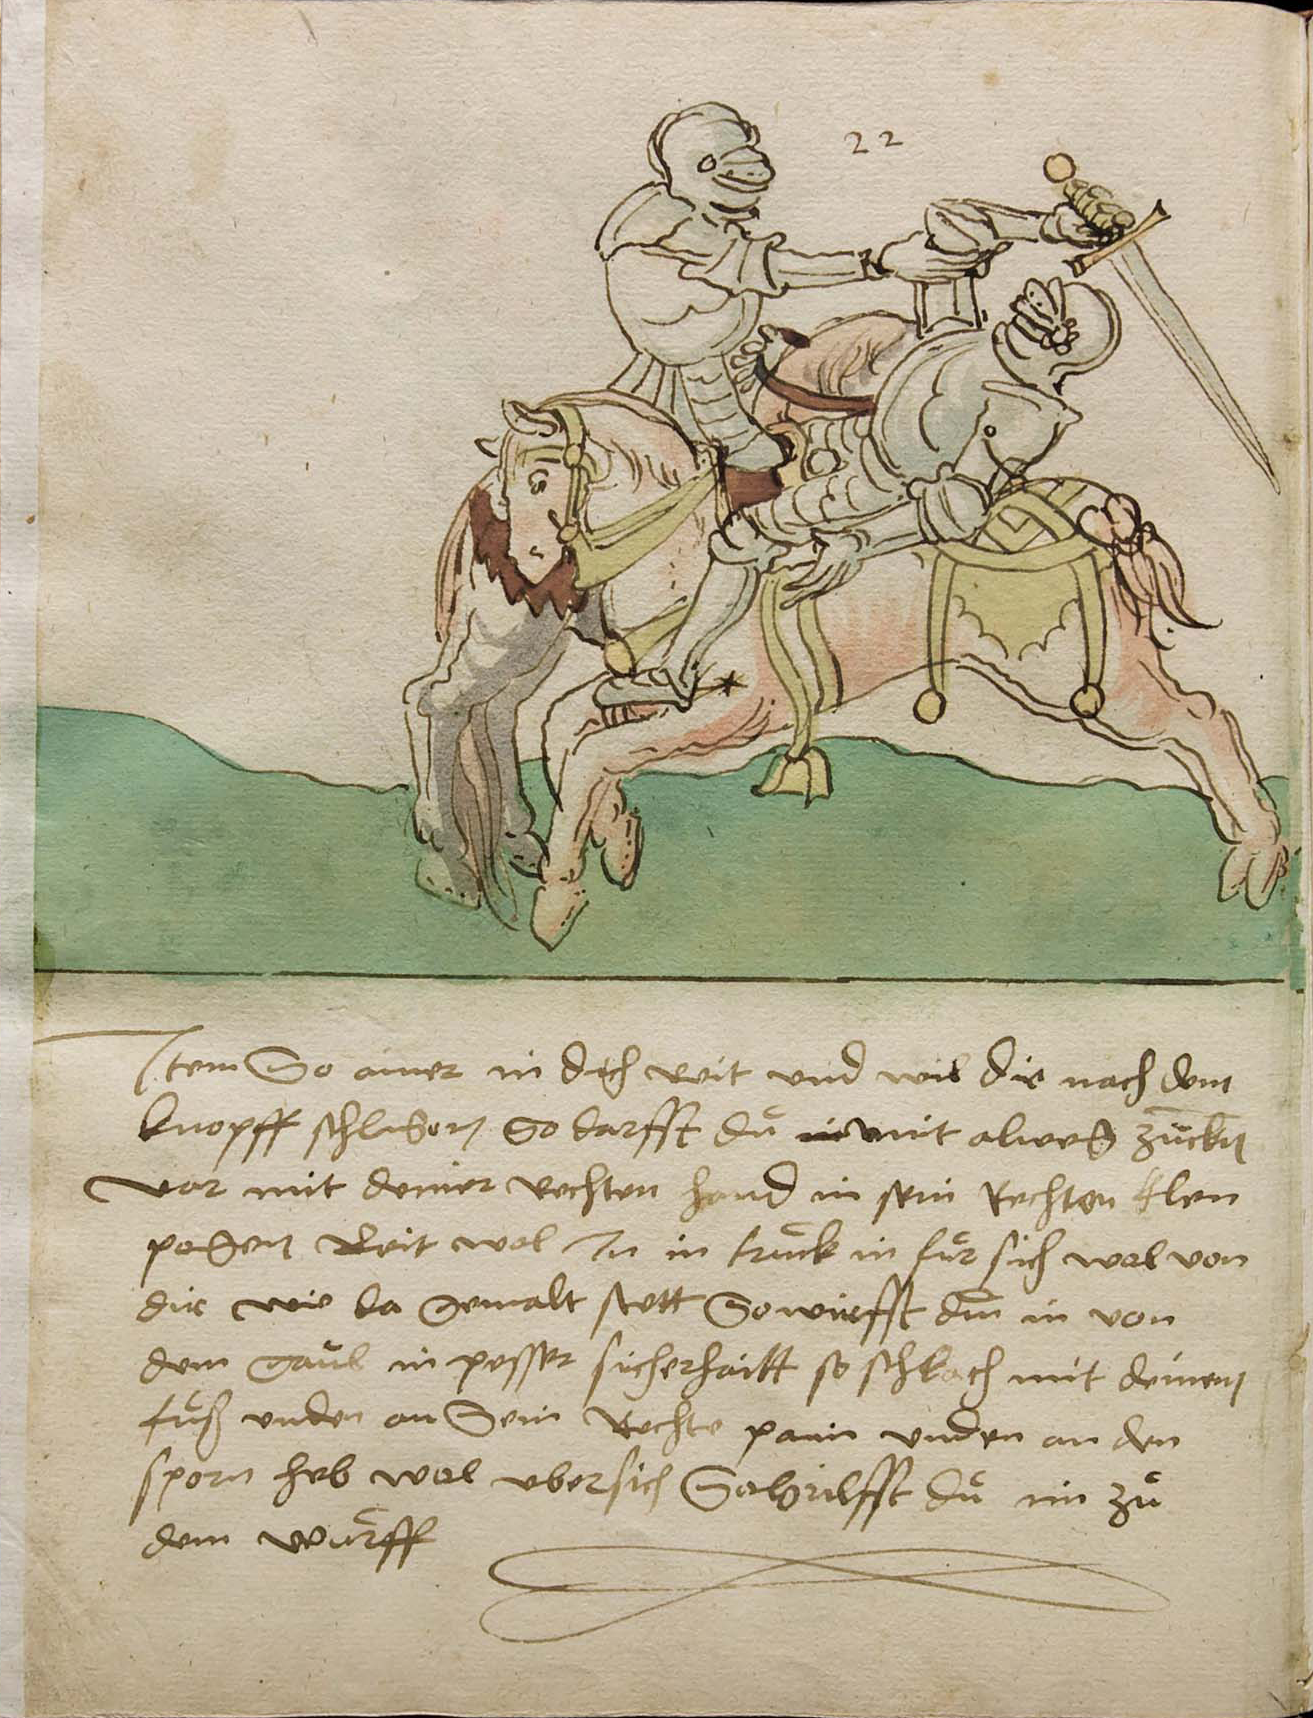 22
Item So ainer in dich reit und wil dir nach dem
knopff schlahen So darfft du mit alweg zucken
var mit deiner rechten hand in sein Rechten
Reit wol in in truck in fur sich wol von
dir wie da gemalt stett So wirfft du in von
dem gaul in pesser sicherhaitt so schlach mit deinem
fuß unden an Sein Rechte pain unden an den
sporn heb wol ubersich So hilfft du im zu
dem wurff